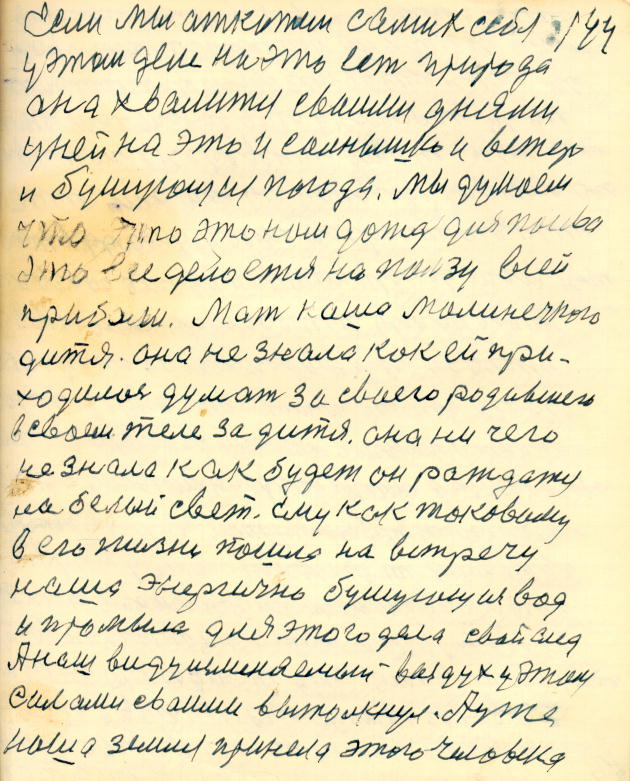 Если мы откроем самих себя 144
у этом деле на это ест природа
она хвалится своими днями
у ней на это и солнышко и ветер
и бушующая погода. Мы думаем
что это ном дожд для
это все делоется на ползу всей
прибыли. Мат наша малинечкого
дитя. она не знала как ей при-
ходилося думат за своего родившего
в своем теле за дитя. она ни чего
не знала как будет он рождат
на белый свет. ему как таковому
в его жизни пошла на встречу
наша энергично бушующия вода
и промыла для этого дела свой след
А наш видушменяемый воздух у этом
силами своими вытолкнул. А уже
наша земля принела этого человека